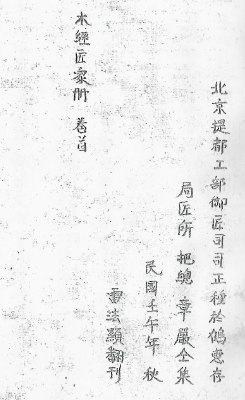 北京提都工部御匠司司正種於鶴存
局匠所 把總 章嚴仝集
民國壬午年 秋
雷法顯翻刊
木經匠家冊 卷首